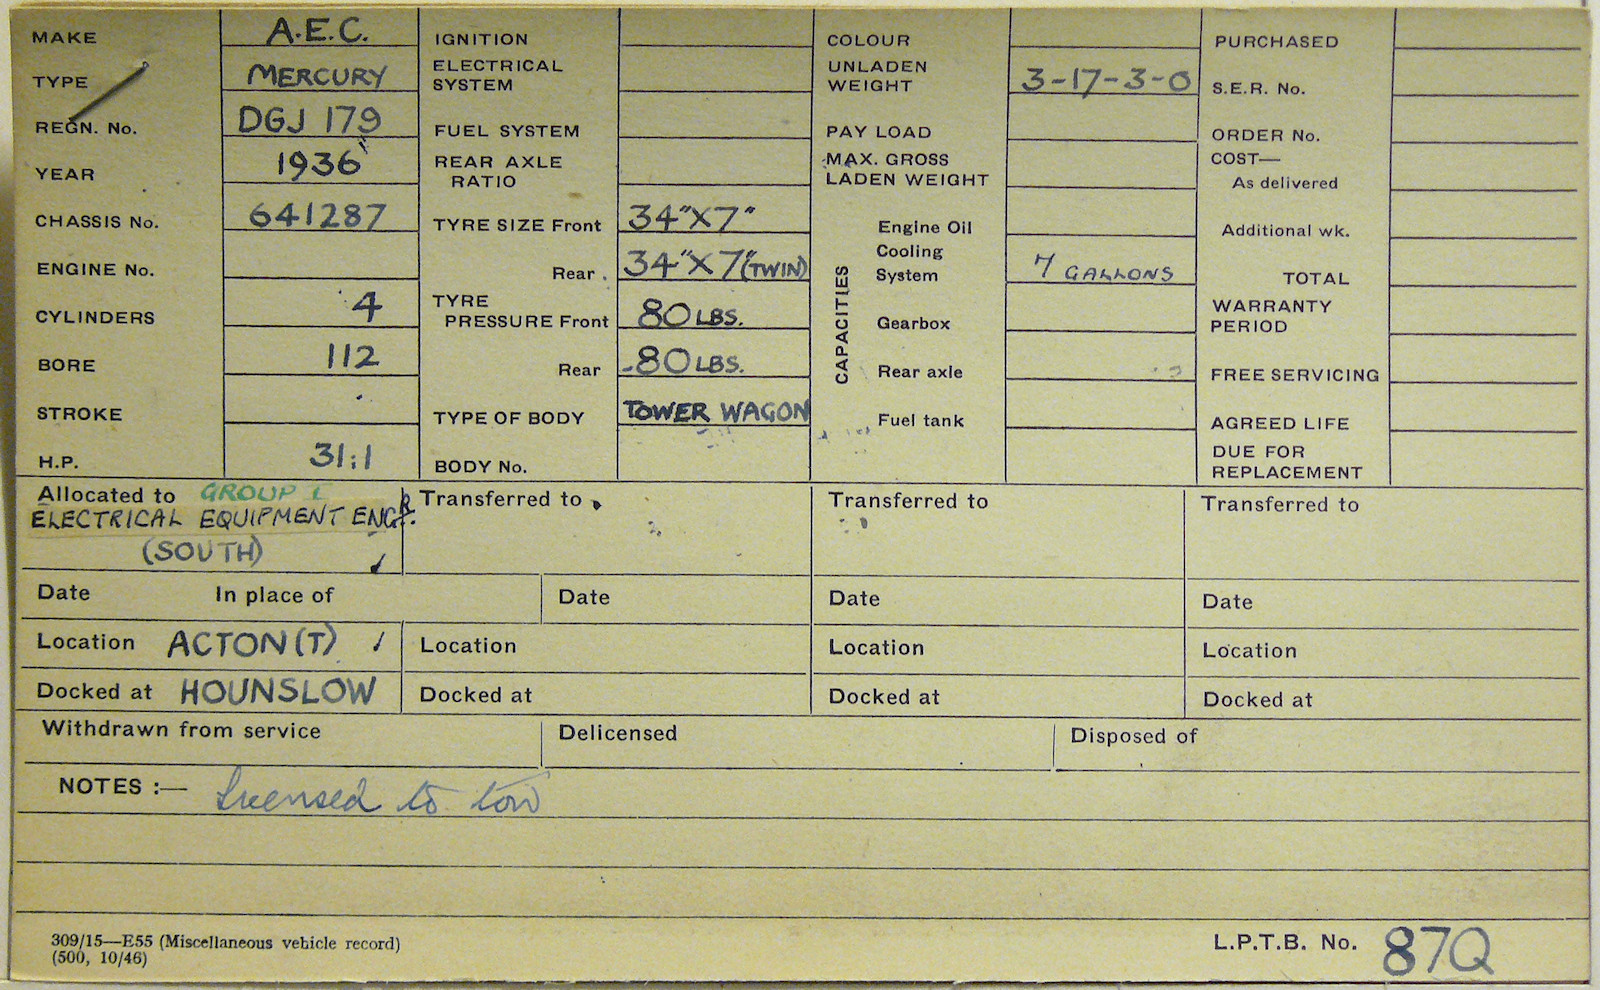 MAKE A.E.C.
TYPE MERCURY
REGN. No. DGJ 179
YEAR 1936
CHASSIS No. 641287
ENGINE No.
CYLINDERS 4
BORE 112
STROKE
H.P. 31.1
IGNITION
ELECTRICAL
SYSTEM
FUEL SYSTEM
REAR AXLE
RATIO
TYRE SIZE Front 34"X7"
Rear 34"X7"(TWIN)
TYRE
PRESSURE Front 80 LBS.
Rear 80 LBS.
TYPE OF BODY TOWER WAGON
BODY No.
COLOUR
UNLADEN
WEIGHT 3-17-3-0
PAY LOAD
MAX. GROSS
LADEN WEIGHT
CAPACITIES
Engine Oil
Cooling
System 7 GALLONS
Gearbox
Rear axle
Fuel tank
PURCHASED
S.E.R. No.
ORDER No.
COST—
As delivered
Additional wk.
TOTAL
WARRANTY
PERIOD
FREE SERVICING
AGREED LIFE
DUE FOR
REPLACEMENT
Allocated to GROUP
ELECTRICAL EQUIPMENT ENGR.
(SOUTH)
Transferred to
Transferred to
Transferred to
Date In place of
Date
Date
Date
Location ACTON (T)
Location
Location
Location
Docked at HOUNSLOW
Docked at
Docked at
Docked at
Withdrawn from service
Delicensed
Disposed of
NOTES :— Licensed to tow
309/15—E55 (Miscellaneous vehicle record)
(500, 10/46)
L.P.T.B. No. 87Q